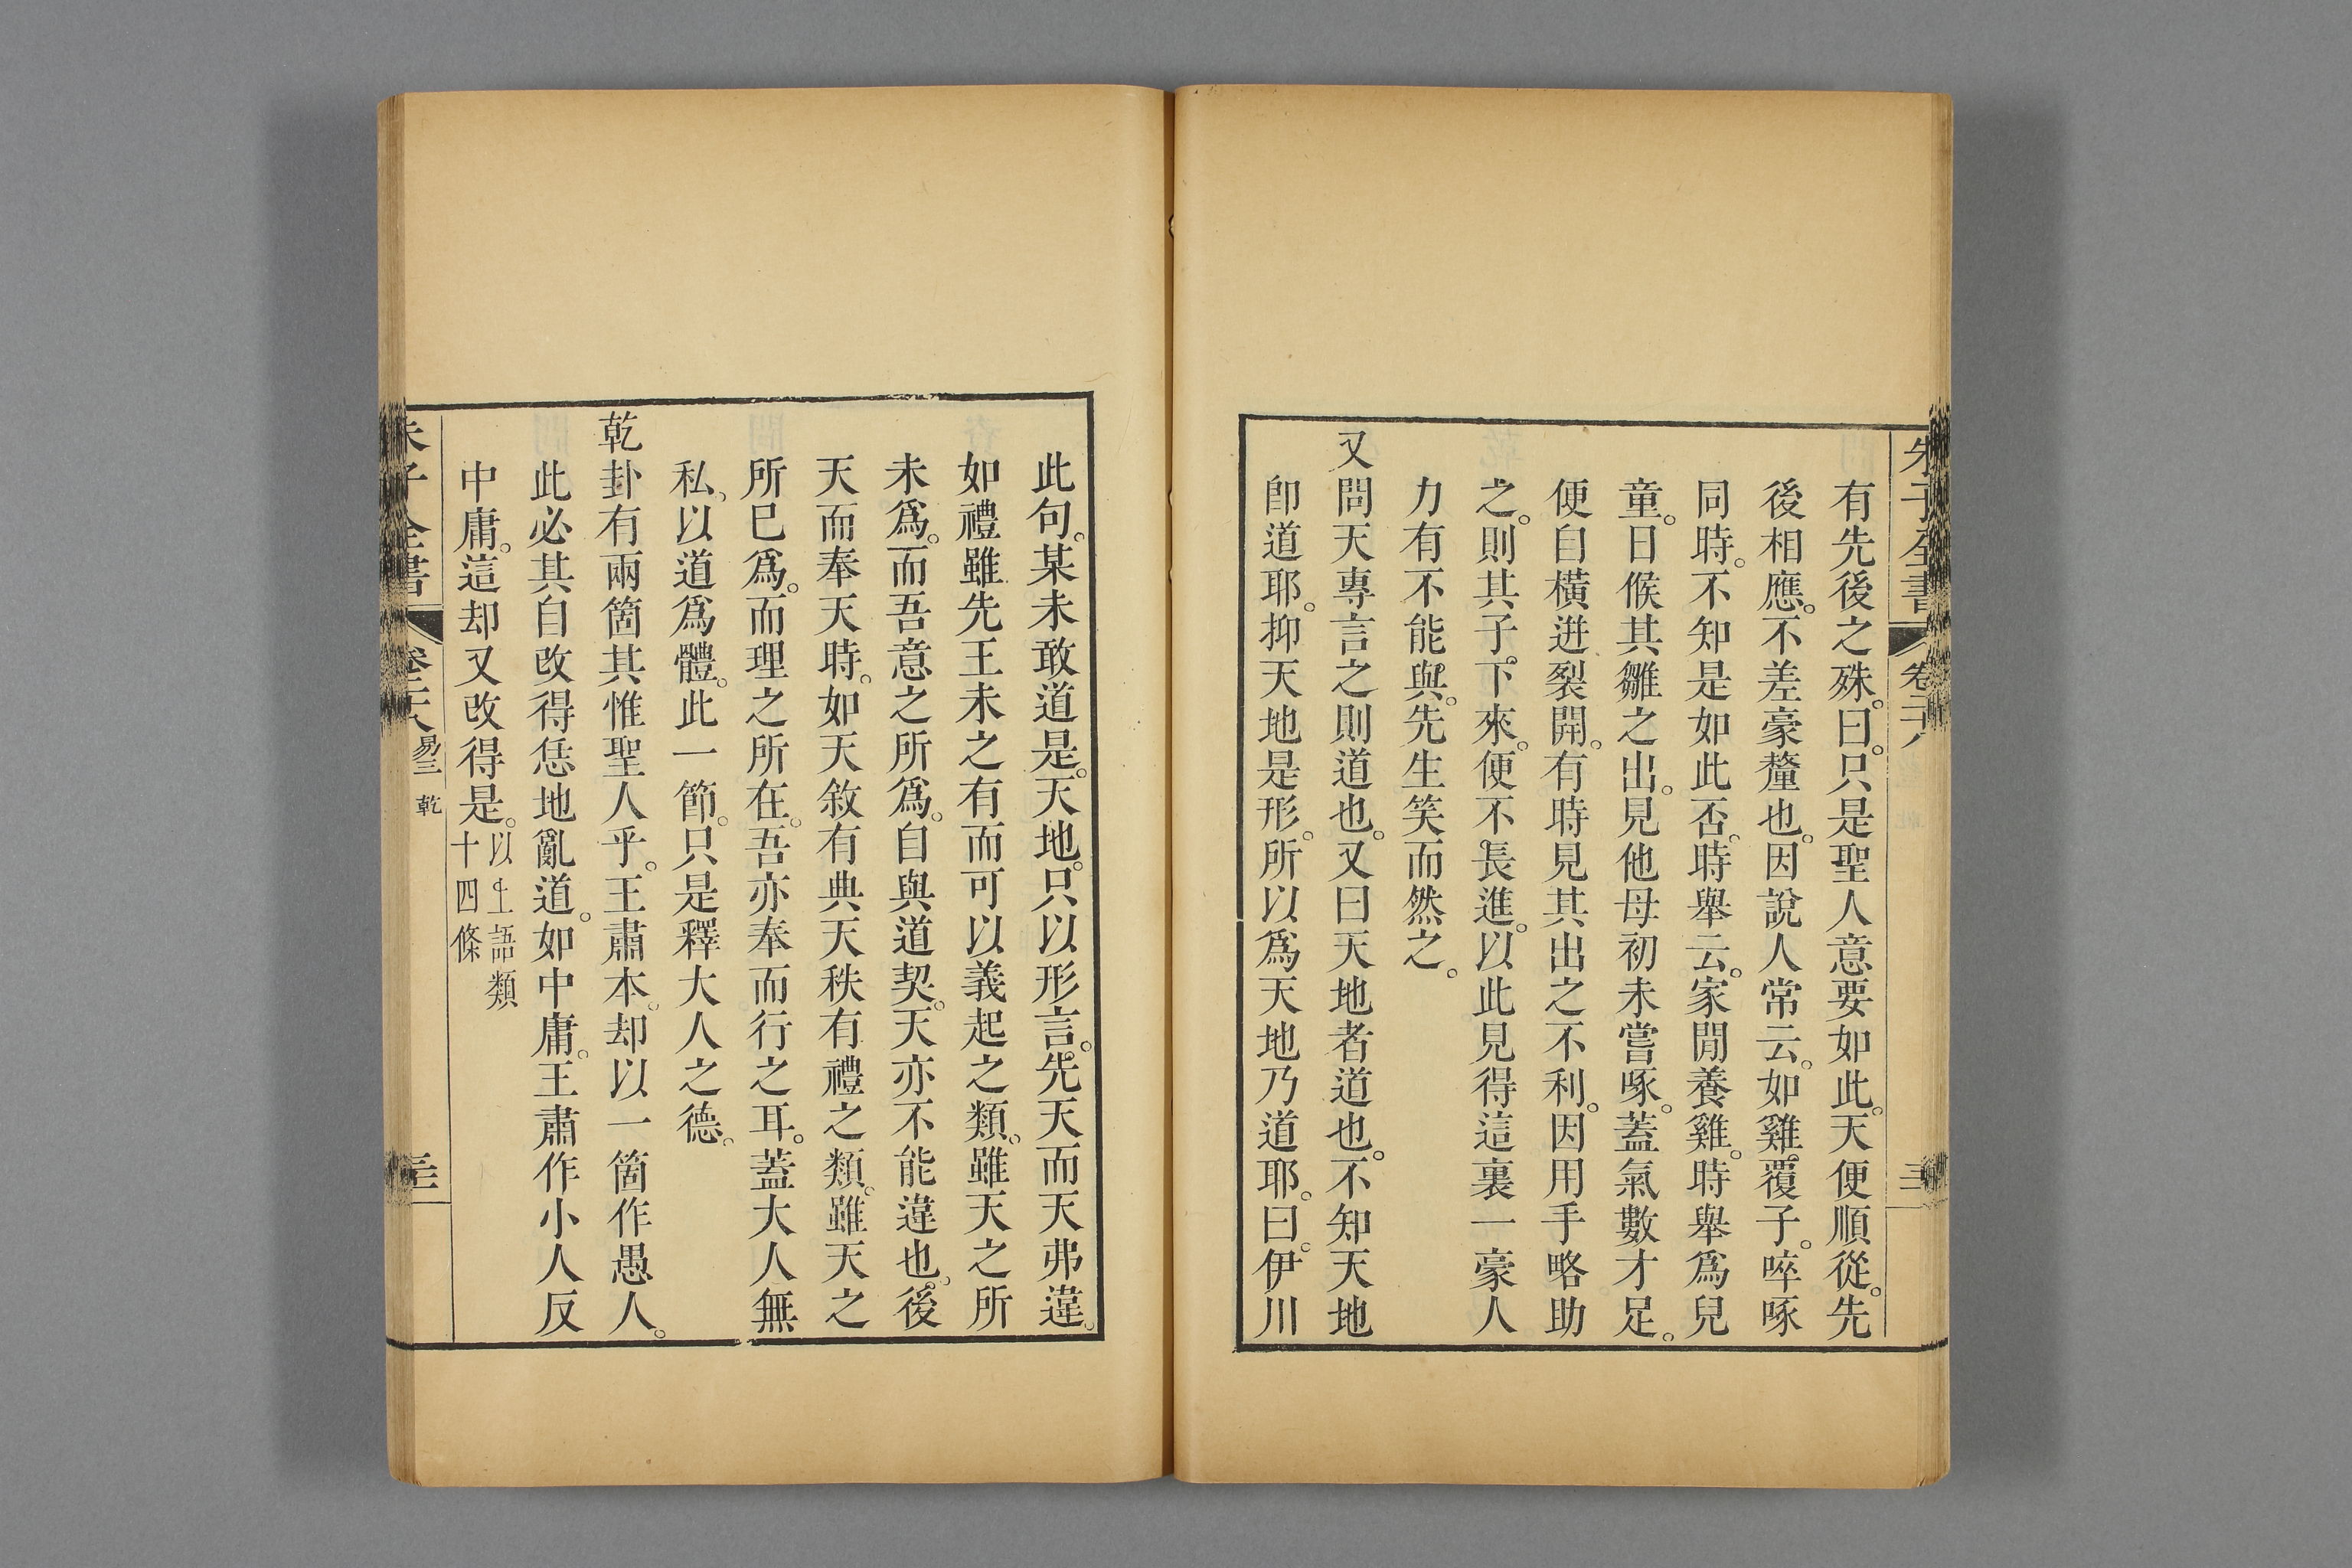 朱子全書 卷二十八 三十二
有先後之殊。曰。只是聖人意要如此。天便順從。先
後相應。不差豪釐也。因說人常云。如雞覆子。啐啄
同時。不知是如此否。時舉云。家閒養雞。時舉爲兒
童。日候其雛之出。見他母初未嘗啄。蓋氣數才足。
便自橫迸裂開。有時見其出之不利。因用手略助
之。則其子下來。便不長進。以此見得這裏一豪人
力有不能與。先生笑而然之。
又問天專言之則道也。又曰天地者道也。不知天地
卽道耶。抑天地是形。所以爲天地乃道耶。曰。伊川
此句。某未敢道是。天地。只以形言。先天而天弗違。
如禮雖先王未之有而可以義起之類。雖天之所
未爲。而吾意之所爲。自與道契。天亦不能違也。後
天而奉天時。如天敘有典天秩有禮之類。雖天之
所已爲。而理之所在。吾亦奉而行之耳。蓋大人無
私。以道爲體。此一節。只是釋大人之德。
乾卦有兩箇其惟聖人乎。王肅本。却以一箇作愚人。
此必其自改得恁地亂道。如中庸。王肅作小人反
中庸。這却又改得是。以上語類
十四條
朱子全書 卷二十八 易三 乾 三十三